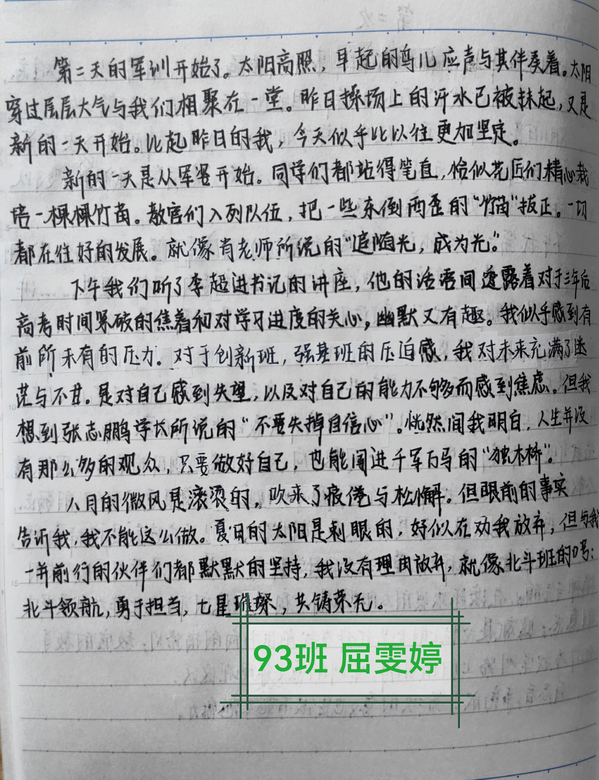 第二天的军训开始了。太阳高照，早起的鸟儿应声与其伴奏着。太阳
穿过层层大气与我们相聚在一堂。昨日操场上的汗水已被抹起，又是
新的一天开始。比起昨日的我，今天似乎比以往更加坚定。
新的一天是从军姿开始。同学们都站得笔直，恰似花匠们精心栽
培一棵棵竹苗。教官们入列队伍，把一些东倒西歪的“竹苗”拔正。一切
都在往好的发展。就像肖老师所说的“追随光，成为光”。
下午我们听了李超进书记的讲座，他的话语间透露着对于三年后
高考时间紧破的焦着和对学习进度的关心，幽默又有趣。我似乎感到有
前所未有的压力。对于创新班，强基班的压迫感，我对未来充满了迷
茫与不甘。是对自己感到失望，以及对自己的能力不够而感到焦虑。但我
想到张志鹏学长所说的“不要失掉自信心”。恍然间我明白，人生并没
有那么多的观众，只要做好自己，也能闯进千军万马的“独木桥”。
八月的微风是滚烫的。吹来了疲倦与松懈。但眼前的事实
告诉我，我不能这么做。夏日的太阳是刺眼的，好似在劝我放弃，但与我
一并前行的伙伴们都默默的坚持，我没有理由放弃，就像北斗班的口号：
北斗领航，勇于担当，七星璀璨，共铸荣光。
93班 屈雯婷